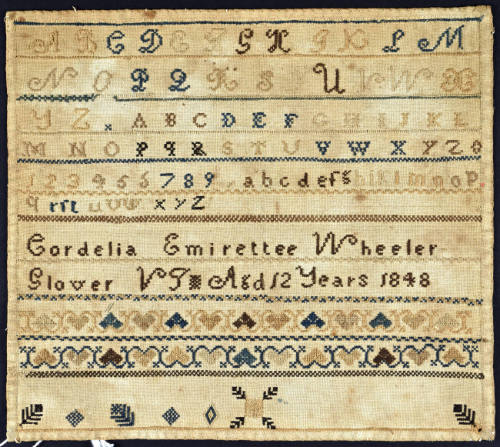 A B C D E F G H I K L M
N O P Q R S U V W X
Y Z A B C D E F G H I J K L
M N O P Q R S T U V W X Y Z 0
1 2 3 4 5 6 7 8 9 , a b c d e f g h i k l m n o p
q r s t u v w x y z
Cordelia Emirettee Wheeler
Glover VT Agd 12 Years 1848